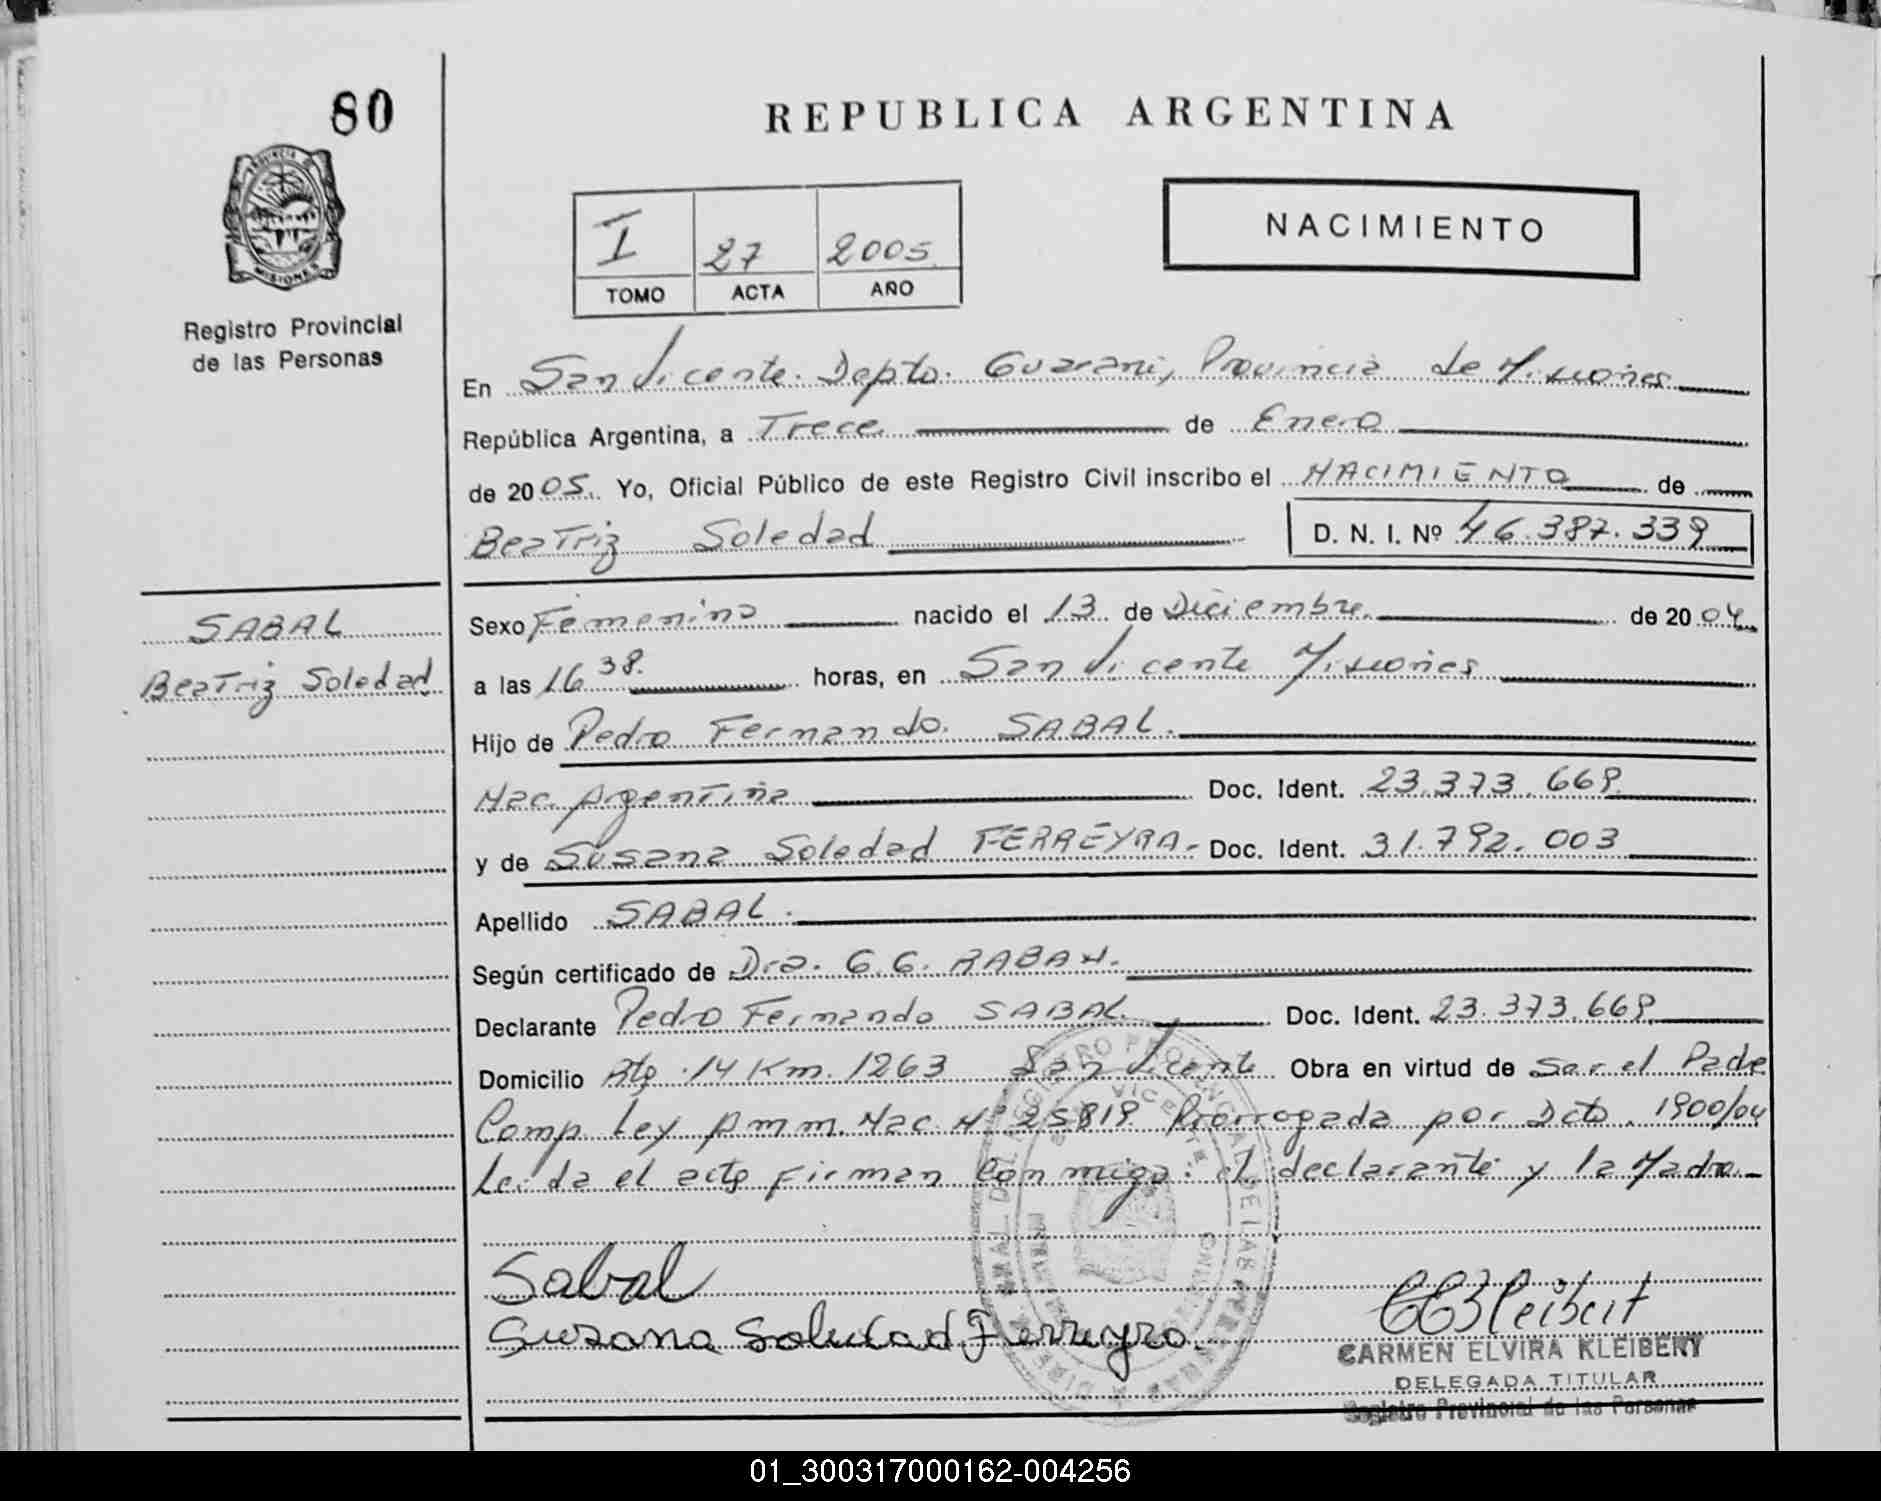 80
REPUBLICA ARGENTINA
PROVINCIA DE
MISIONES
Registro Provincial
de las Personas
I 27 2005
TOMO ACTA AÑO
NACIMIENTO
En San Vicente. Depto. Guarani, Provincia de Misiones
República Argentina, a Trece de Enero
de 2005. Yo, Oficial Público de este Registro Civil inscribo el NACIMIENTO de
Beatriz Soledad D. N. I. Nº 46.387.339
SABAL
Beatriz Soledad
Sexo Femenino nacido el 13 de Diciembre de 2004
a las 16 38. horas, en San Vicente Misiones
Hijo de Pedro Fernando SABAL.
Nac. Argentina Doc. Ident. 23.373.669
y de Susana Soledad FERREYRA- Doc. Ident. 31.792.003
Apellido SABAL.
Según certificado de Dra. G.G.
Declarante Pedro Fernando SABAL. Doc. Ident. 23.373.669
Domicilio Rta. 14 Km. 1263 San Vicente Obra en virtud de Ser el Padre
Comp. Ley Amm. Nac. Nº 25819 Prorrogada por Dcto. 1900/04
Leida el acta firman conmigo: el declarante y la Madre
Sabal
Susana Soledad Ferreyra.
CARMEN ELVIRA KLEIBERT
DELEGADA TITULAR
Registro Provincial de las Personas
01_300317000162-004256